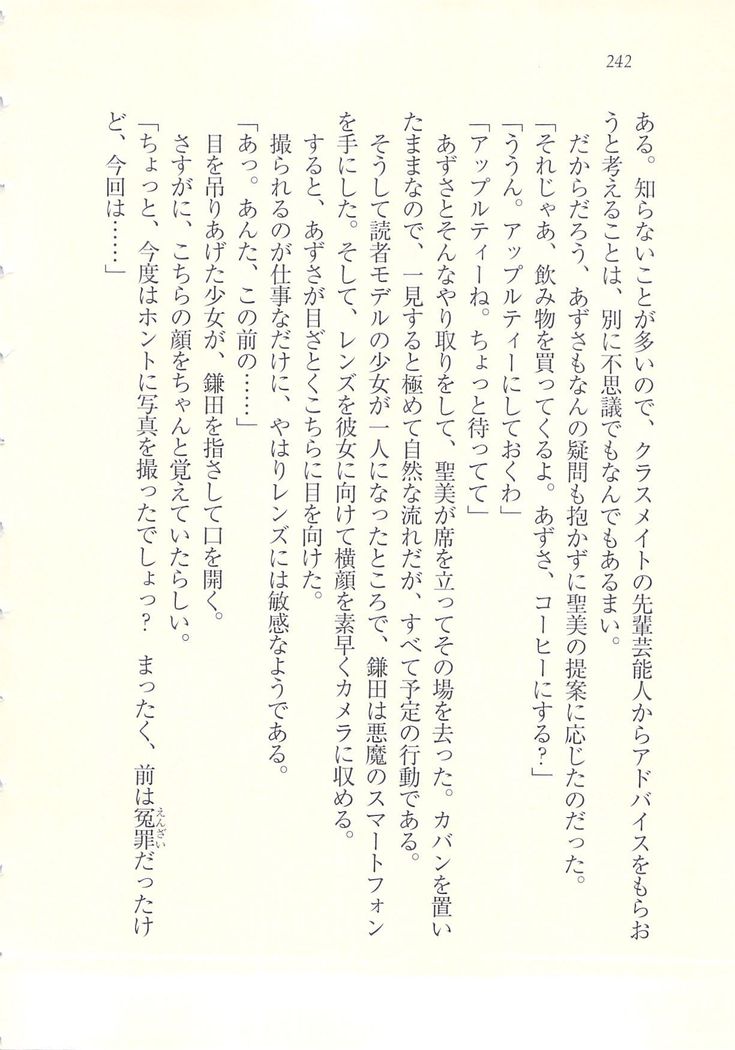 242
ある。知らないことが多いので、クラスメイトの先輩芸能人からアドバイスをもらお
うと考えることは、別に不思議でもなんでもあるまい。
だからだろう、あずさもなんの疑問も抱かずに聖美の提案に応じたのだった。
「それじゃあ、飲み物を買ってくるよ。あずさ、コーヒーにする？」
「ううん。アップルティーにしておくわ」
「アップルティーね。ちょっと待ってて」
あずさとそんなやり取りをして、聖美が席を立ってその場を去った。カバンを置い
たままなので、一見すると極めて自然な流れだが、すべて予定の行動である。
そうして読者モデルの少女が一人になったところで、鎌田は悪魔のスマートフォン
を手にした。そして、レンズを彼女に向けて横顔を素早くカメラに収める。
すると、あずさが目ざとくこちらに目を向けた。
撮られるのが仕事なだけに、やはりレンズには敏感なようである。
「あっ。あんた、この前の……」
目を吊りあげた少女が、鎌田を指さして口を開く。
さすがに、こちらの顔をちゃんと覚えていたらしい。
「ちょっと、今度はホントに写真を撮ったでしょっ？　まったく、前は冤罪だったけ
えんざい
ど、今回は……」